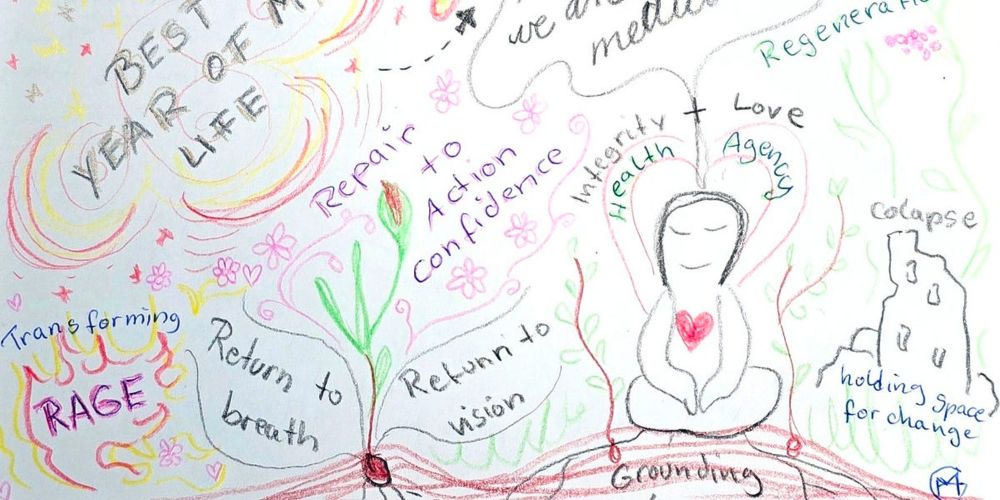 BEST
YEAR OF
LIFE
we
Regenerati
Repair
to
Action
confidence
Integrity
Health
+ Love
Agency
Colapse
Transforming
RAGE
Return to
breath
Retunn to
vision
holding space
for change
Grounding